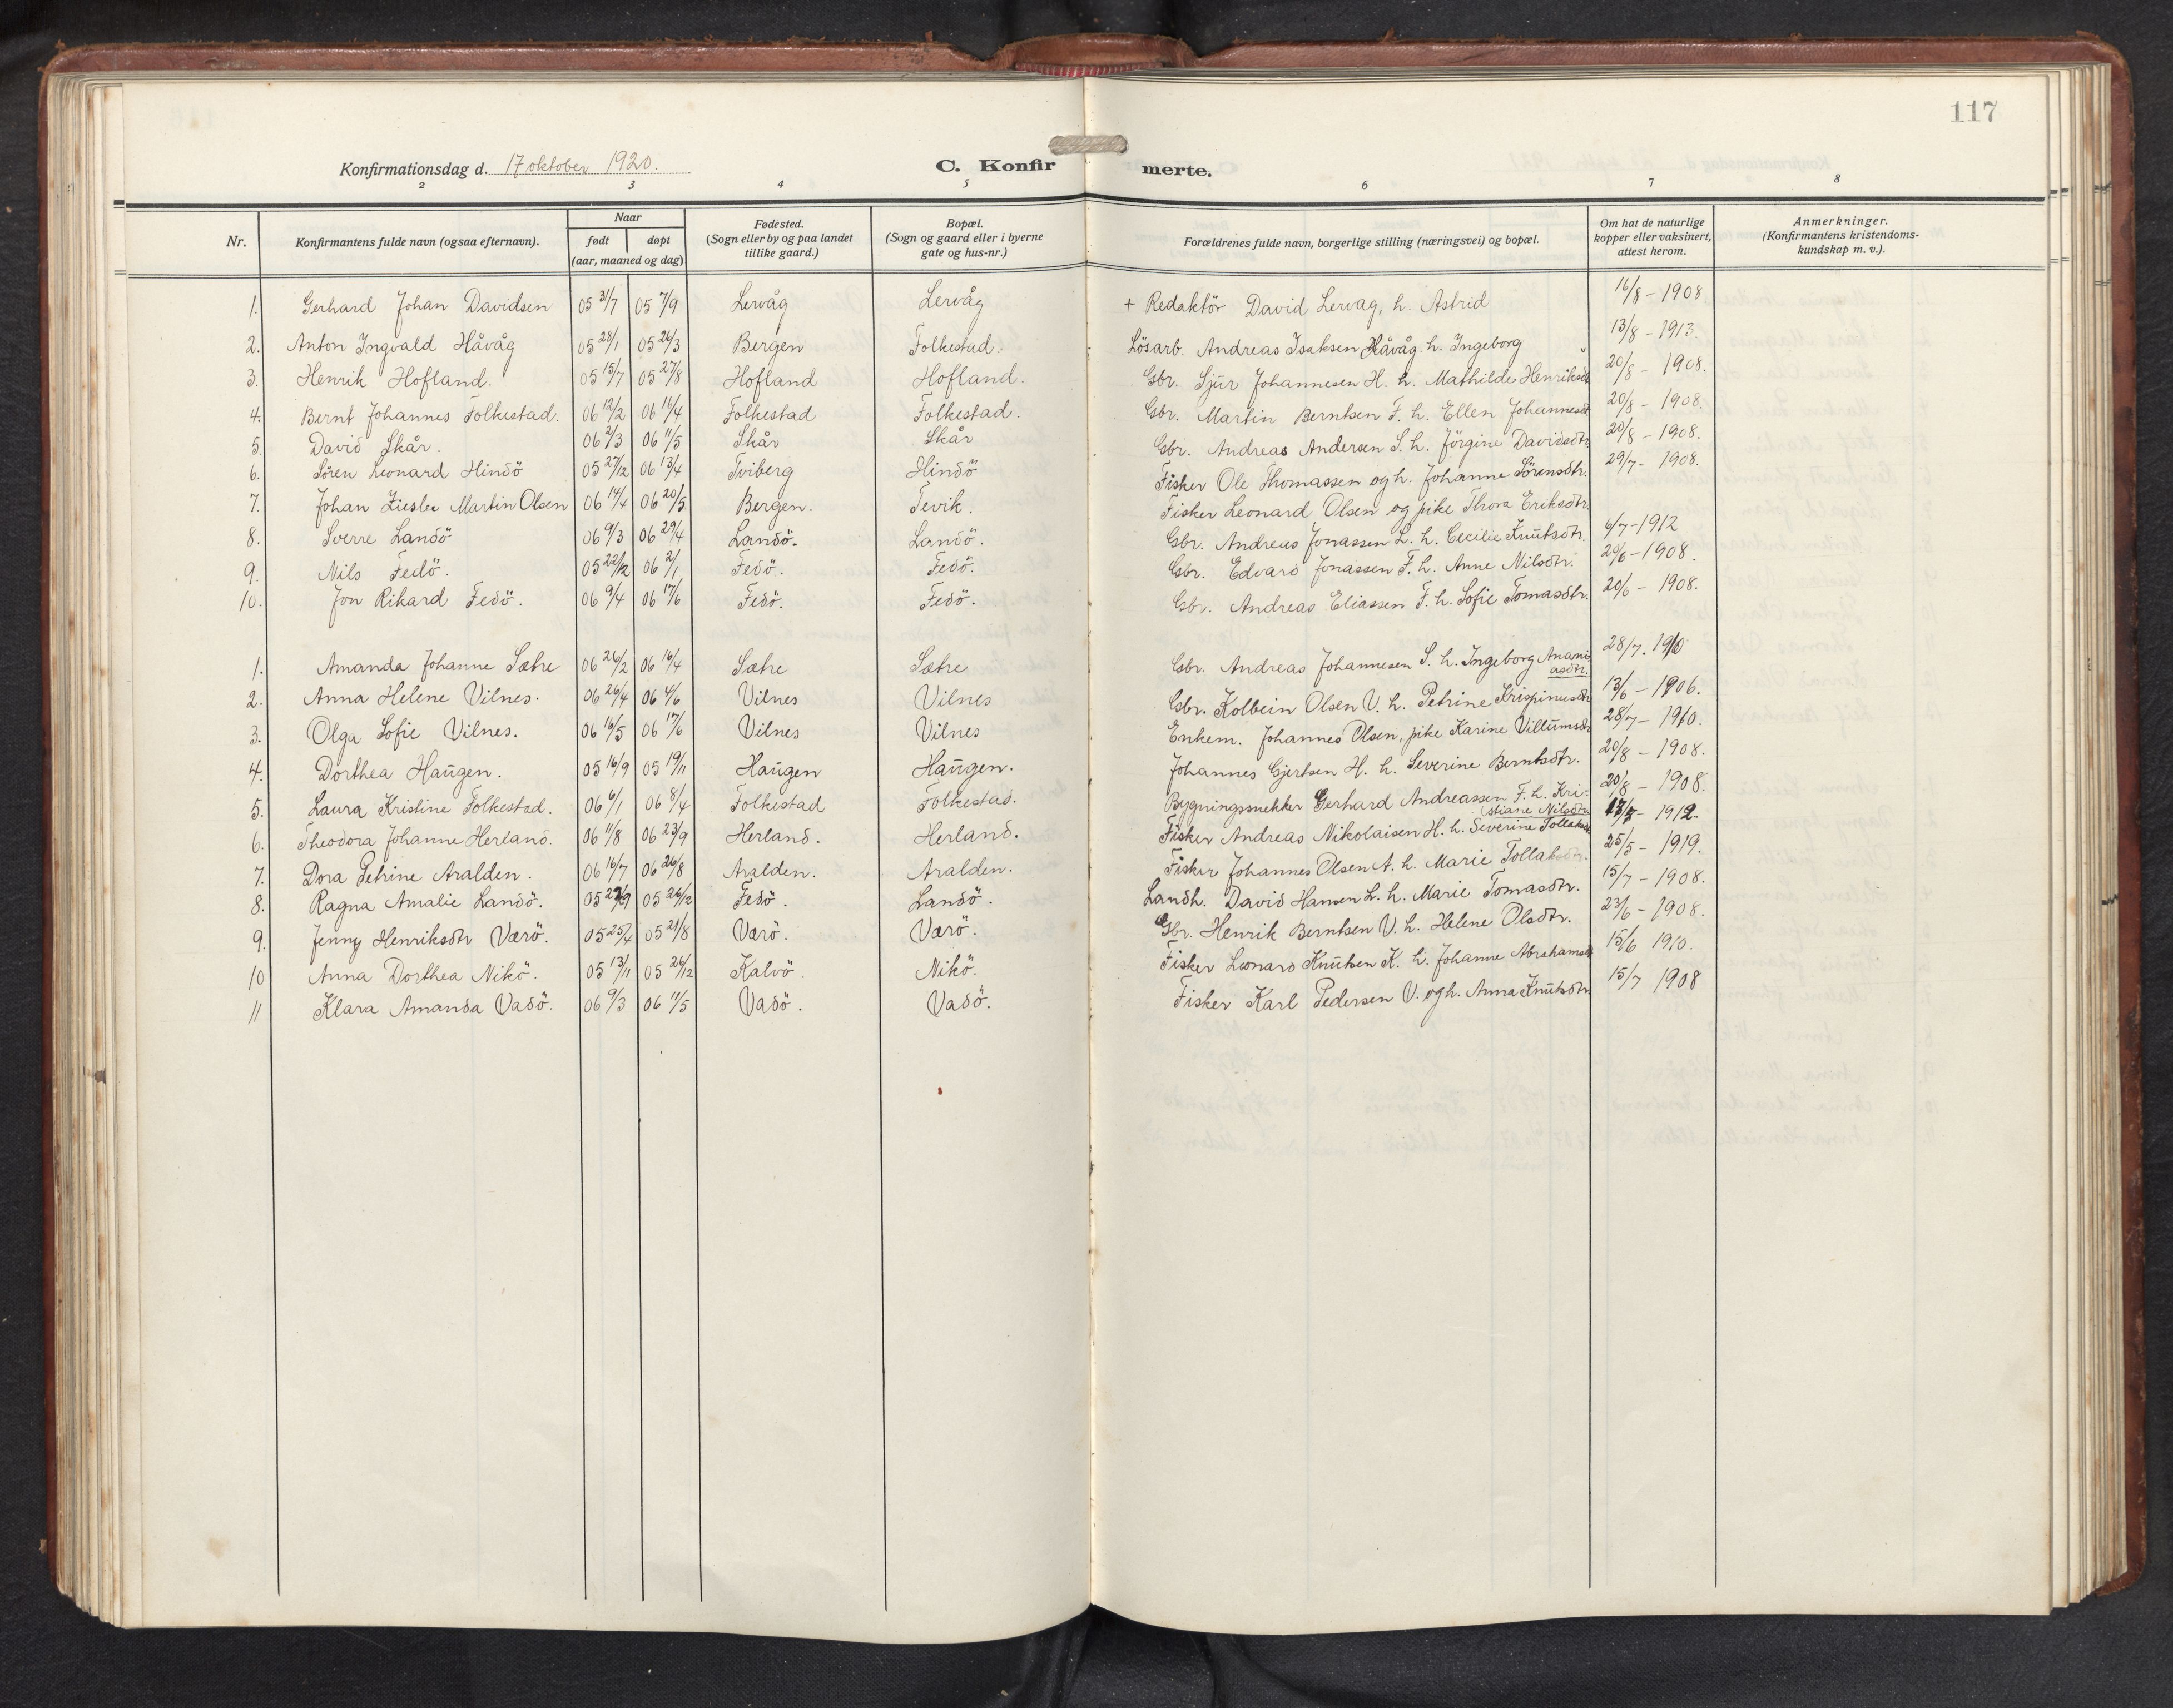 117
Konfirmationsdag d. 17 oktober 1920. C. Konfirmerte.
2 3 4 5 6 7 8
Nr. Konfirmantens fulde navn (ogsaa efternavn). Naar født døpt (aar, maaned og dag) Fødested. (Sogn eller by og paa landet tillike gaard.) Bopæl. (Sogn og gaard eller i byerne gate og hus-nr.) Forældrenes fulde navn, borgerlige stilling (næringsvei) og bopæl. Om hat de naturlige kopper eller vaksinert, attest herom. Anmerkninger. (Konfirmantens kristendomskundskap m. v.).
1. Gerhard Johan Davidsen 05 31/7 05 7/9 Lervåg Lervåg + Redaktör David Lervag, h. Astrid 16/8 - 1908
2. Anton Ingvald Håvåg 05 28/1 05 26/3 Bergen Folkestad. Lösarb. Andreas Isaksen Håvåg h. Ingeborg 13/8 - 1913.
3. Henrik Hofland. 05 15/7 05 27/8 Hofland Hofland. Gbr. Sjur Johannesen H. h. Mathilde Henriksdt 20/8 - 1908.
4. Bernt Johannes Folkestad. 06 12/2 06 11/4 Folkestad Folkestad. Gbr. Martin Berntsen F. h. Ellen Johannesdt 20/8 - 1908.
5. David Skår. 06 2/3 06 11/5 Skår Skår Gbr. Andreas Andersen S. h. Jörgine Davidsdtr. 20/8 - 1908.
6. Sören Leonard Hindö 05 27/12 06 13/4 Tviberg Hindö Fisker Ole Thomassen og h. Johanne Sörensdtr. 29/7 - 1908.
7. Johan Ziesler Martin Olsen 06 14/4 06 20/5 Bergen. Tevik. Fisker Leonard Olsen og pike Thora Eriksdtr.
8. Sverre Landö 06 9/3 06 29/4 Landö. Landö. Gbr. Andreas Jonassen L. h. Cecilie Knutsdtr. 6/7 - 1912
9. Nils Fedö. 05 22/12 06 2/1 Fedö. Fedö. Gbr. Edvard Jonassen F. h. Anne Nilsdtr. 20/6 - 1908.
10. Jon Rikard Fedö. 06 9/4 06 17/6 Fedö. Fedö. Gbr. Andreas Eliassen F. h. Sofie Tomasdtr. 20/6 - 1908.
1. Amanda Johanne Sætre 06 26/2 06 16/4 Sætre Sætre Gbr. Andreas Johannesen S. h. Ingeborg Anani- 28/7. 1910
asdtr.
2. Anna Helene Vilnes. 06 26/4 06 4/6 Vilnes Vilnes Gbr. Kolbein Olsen V. h. Petrine Krispinusdtr 13/6 - 1906.
3. Olga Sofie Vilnes. 06 16/5 06 17/6 Vilnes Vilnes Enkem. Johannes Olsen, pike Karine Villumsdtr 28/7 - 1910.
4. Dorthea Haugen. 05 16/9 05 19/11 Haugen Haugen. Johannes Gjertsen H. h. Severine Berntsdtr. 20/8 - 1908.
5. Laura Kristine Folkestad. 06 6/1 06 8/4 Folkestad Folkestad. Bygningssnekker Gerhard Andreassen F. h. Kri- 20/8 - 1908.
stiane Nilsdtr.
6. Theodora Johanne Herland. 06 11/8 06 23/9 Herland. Herland. Fisker Andreas Nikolaisen H. h. Severine Tollaksdt 17/7 - 1912.
7. Dora Petrine Aralden. 06 16/7 06 26/8 Aralden. Aralden. Fisker Johannes Olsen A. h. Marie Tollaksdtr. 25/5 - 1919.
8. Ragna Amalie Landö. 05 27/9 05 26/12 Fedö. Landö. Landh. David Hansen L. h. Marie Tomasdtr. 15/7 - 1908.
9. Jenny Henriksdtr Værö. 05 25/4 05 21/8 Værö. Værö. Gbr. Henrik Berntsen V. h. Helene Olsdtr. 23/6 - 1908.
10 Anna Dorthea Nikö. 05 13/11 05 26/12 Kalvö Nikö. Fisker Leonard Knutsen K. h. Johanne Abrahamsdt 15/6 1910.
11 Klara Amanda Vadö. 06 9/3 06 11/5 Vadö. Vadö. Fisker Karl Pedersen V. og h. Anna Knutsdtr. 15/7 1908